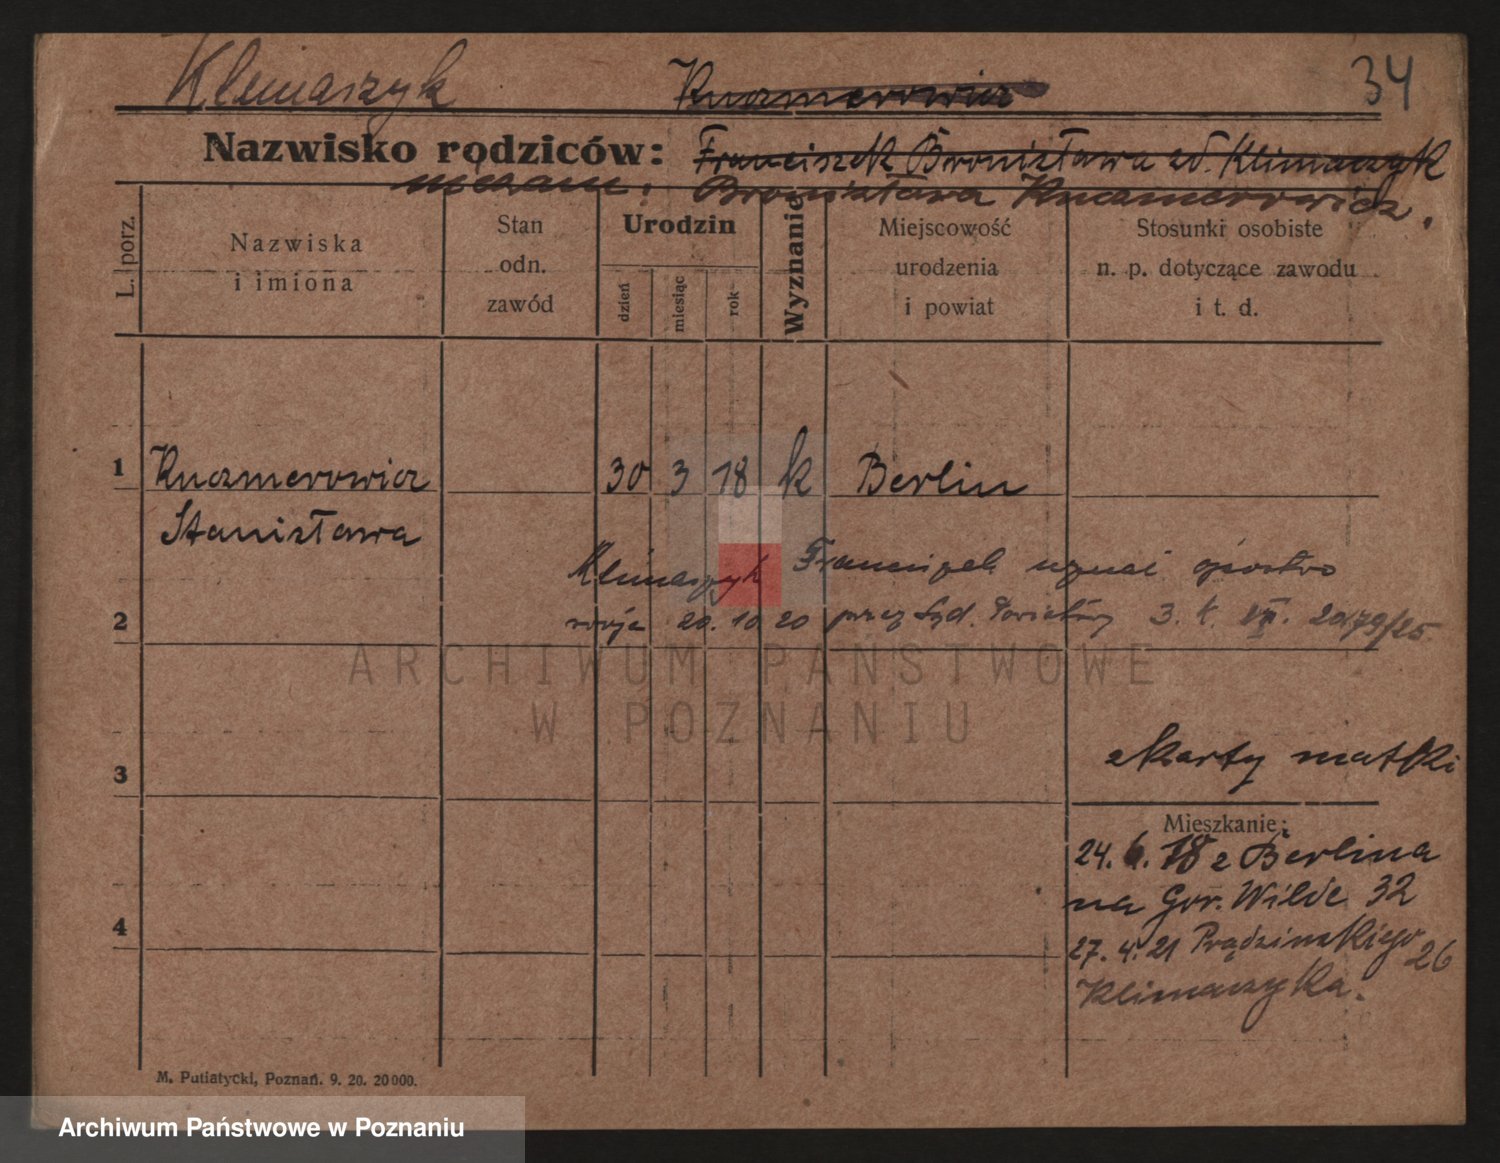 Klimaszyk Kuczmerowicz 34
Nazwisko rodziców: Franciszek Bronisława zd. Klimaszyk
niezam: Bronisława Kuczmerowicz.
L. porz.
Nazwiska
i imiona
Stan
odn.
zawód
Urodzin
dzień
miesiąc
rok
Wyznanie
Miejscowość
urodzenia
i powiat
Stosunki osobiste
n. p. dotyczące zawodu
i t. d.
1 Kuczmerowicz 30 3 18 k Berlin
Stanisława
Klimaszyk Franciszek uznał ojcostwo
2 swoje 20. 10 20 przez Sąd. Powiatowy 3. k. VII. 2079/25
ARCHIWUM PAŃSTWOWE
W POZNANIU
z karty matki
3
Mieszkanie:
24. 6. 18 z Berlina
na Gór. Wilde 32
4
27. 4. 21 Prądzinskiego 26
Klimaszyka.
M. Putiatycki, Poznań. 9. 20. 20000.
Archiwum Państwowe w Poznaniu